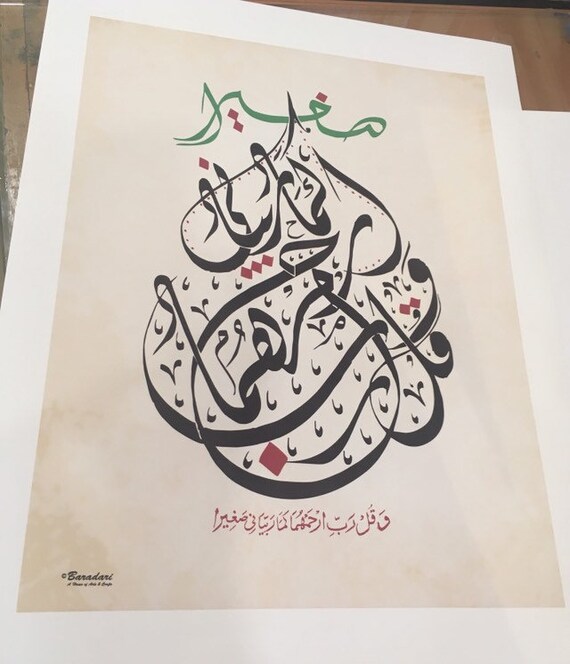 وقل رب ارحمهما كما ربياني
صغيرا
وَ قُلْ رَبِّ ارْحَمْهُمَا كَمَا رَبَّيَانِي صَغِيرًا
©Baradari
A House of Arts & Crafts